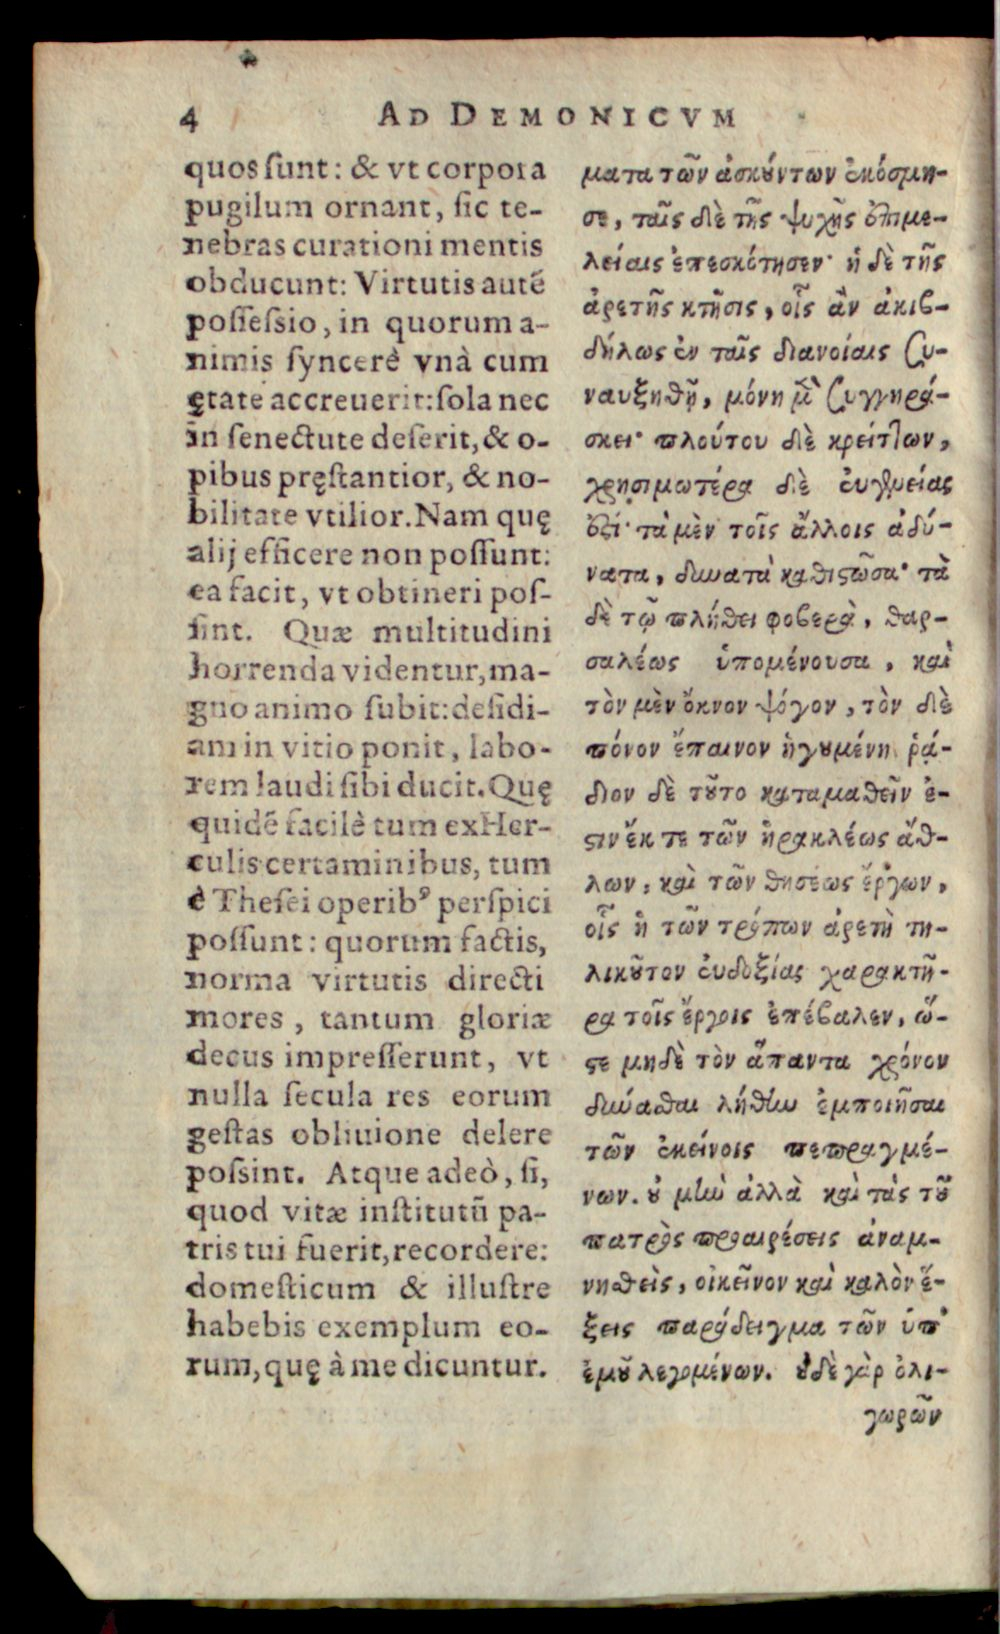 4 AD DEMONICVM
quos ſunt: & vt corpora
pugilum ornant, ſic te-
nebras curationi mentis
obducunt: Virtutis autē
poſſeſsio, in quorum a-
nimis ſyncerè vnà cum
ętate accreuerit: ſola nec
in ſenectute deſerit, & o-
pibus pręſtantior, & no-
bilitate vtilior. Nam quę
alij efficere non poſſunt:
ea facit, vt obtineri poſ-
ſint. Quæ multitudini
horrenda videntur, ma-
gno animo ſubit: deſidi-
am in vitio ponit, labo-
rem laudi ſibi ducit. Quę
quidē facilè tum ex Her-
culis certaminibus, tum
è Theſei operibꝰ perſpici
poſſunt: quorum factis,
norma virtutis directi
mores, tantum gloriæ
decus impreſſerunt, vt
nulla ſecula res eorum
geſtas obliuione delere
poſsint. Atque adeò, ſi,
quod vitæ inſtitutū pa-
tris tui fuerit, recordere:
domeſticum & illuſtre
habebis exemplum eo-
rum, quę à me dicuntur.
ματα τῶν ἀσκούντων ἐκόσμη-
σε, ταῖς δὲ τῆς ψυχῆς ἐπιμε-
λείαις ἐπεσκότησεν· ἡ δὲ τῆς
ἀρετῆς κτῆσις, οἷς ἂν ἀκιβ-
δήλως ἐν ταῖς διανοίαις συ-
ναυξηθῇ, μόνη μὲν συγγηρά-
σκει· πλούτου δὲ κρείττων,
χρησιμωτέρα δὲ εὐγενείας
ἐστί· τὰ μὲν τοῖς ἄλλοις ἀδύ-
νατα, δυνατὰ καθιστῶσα· τὰ
δὲ τῷ πλήθει φοβερὰ, θαρ-
σαλέως ὑπομένουσα, καὶ
τὸν μὲν ὄκνον ψόγον, τὸν δὲ
πόνον ἔπαινον ἡγουμένη. ῥᾴ-
διον δὲ τοῦτο καταμαθεῖν ἐ-
στὶν ἔκ τε τῶν ἡρακλέως ἄθ-
λων, καὶ τῶν θησέως ἔργων,
οἷς ἡ τῶν τρόπων ἀρετὴ τη-
λικοῦτον εὐδοξίας χαρακτῆ-
ρα τοῖς ἔργοις ἐπέβαλεν, ὥ-
στε μηδὲ τὸν ἅπαντα χρόνον
δύνασθαι λήθην ἐμποιῆσαι
τῶν ἐκείνοις πεπραγμέ-
νων. οὐ μὴν ἀλλὰ καὶ τὰς τοῦ
πατρὸς προαιρέσεις ἀναμ-
νησθεὶς, οἰκεῖον καὶ καλὸν ἕ-
ξεις παράδειγμα τῶν ὑπ'
ἐμοῦ λεγομένων. οὐδὲ γὰρ ὀλι-
γωρῶν